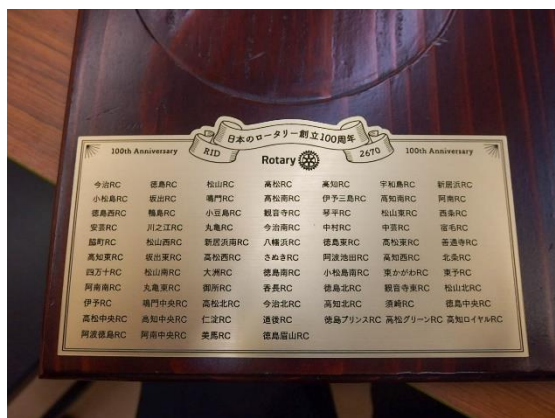 日本のロータリー創立100周年
100th Anniversary RID 2670 100th Anniversary
Rotary
今治RC 徳島RC 松山RC 高松RC 高知RC 宇和島RC 新居浜RC
小松島RC 坂出RC 鳴門RC 高松南RC 伊予三島RC 高知南RC 阿南RC
徳島西RC 鴨島RC 小豆島RC 観音寺RC 琴平RC 松山東RC 西条RC
安芸RC 川之江RC 丸亀RC 今治南RC 中村RC 中芸RC 宿毛RC
脇町RC 松山西RC 新居浜南RC 八幡浜RC 徳島東RC 高松東RC 善通寺RC
高知東RC 坂出東RC 高松西RC さぬきRC 阿波池田RC 高知西RC 北条RC
四万十RC 松山南RC 大洲RC 徳島南RC 小松島南RC 東かがわRC 東予RC
阿南南RC 丸亀東RC 御所RC 香長RC 徳島北RC 観音寺東RC 松山北RC
伊予RC 鳴門中央RC 高松北RC 今治北RC 高知北RC 須崎RC 徳島中央RC
高松中央RC 高知中央RC 仁淀RC 道後RC 徳島プリンスRC 高松グリーンRC 高知ロイヤルRC
阿波徳島RC 阿南中央RC 美馬RC 徳島眉山RC